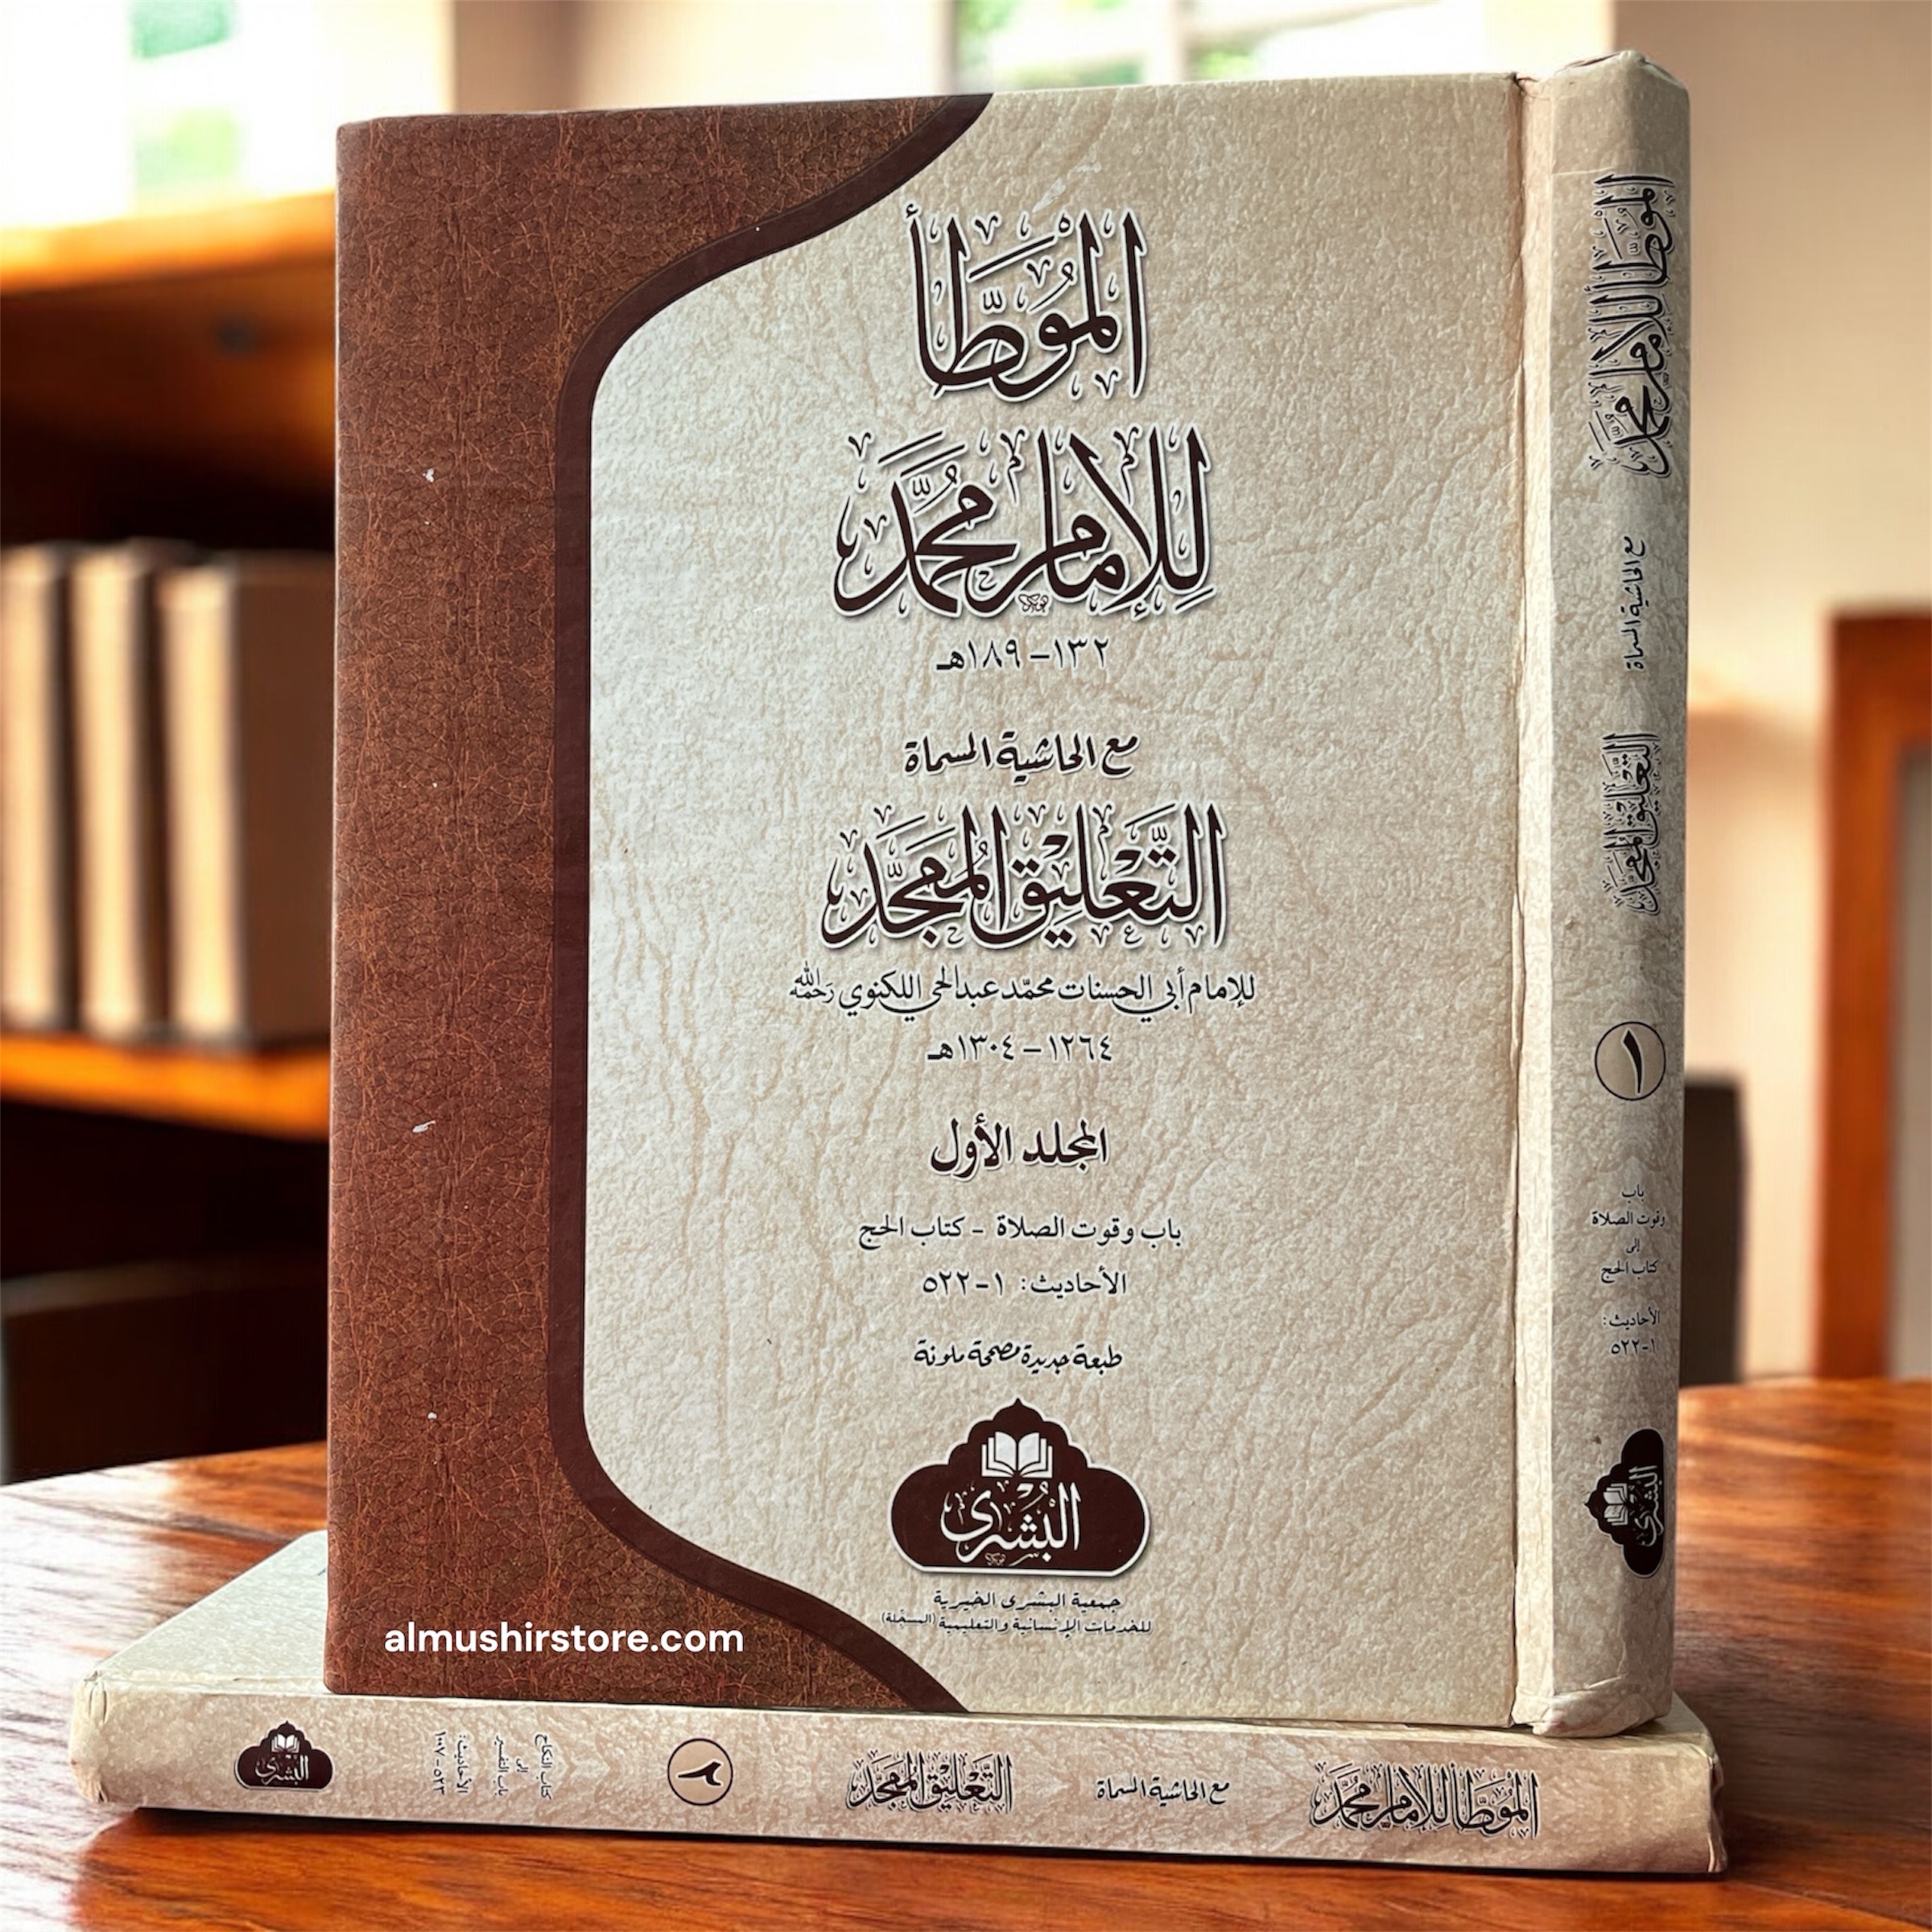 المُوَطَّأ
لِلإمام محمَّد
١٣٢ – ١٨٩هـ
مع الحاشية المسماة
التَّعْلِيْق المُمَجَّد
للإمام أبي الحسنات محمّد عبدالحي اللكنوي رَحمَهُ اللّٰه
١٢٦٤ – ١٣٠٤هـ
المجلد الأول
باب وقوت الصلاة - كتاب الحج
الأحاديث: ١-٥٢٢
طبعة جديدة مصححة ملونة
البُشْرى
جمعية البشرى الخيرية
للخدمات الإنسانية والتعليمية (المسجّلة)
almushirstore.com
الموطَّأ للإمام محمَّد
مع الحاشية المسماة
التَّعْلِيْق المُمَجَّد
١
باب
وقوت الصلاة
إلى
كتاب الحج
الأحاديث:
١-٥٢٢
البُشْرى
المُوَطَّأ لِلإمام محمَّد
مع الحاشية المسماة
التَّعْلِيْق المُمَجَّد
٢
كتاب النكاح
إلى
باب التفسير
الأحاديث:
٥٢٣-١٠٠٧
البُشْرى